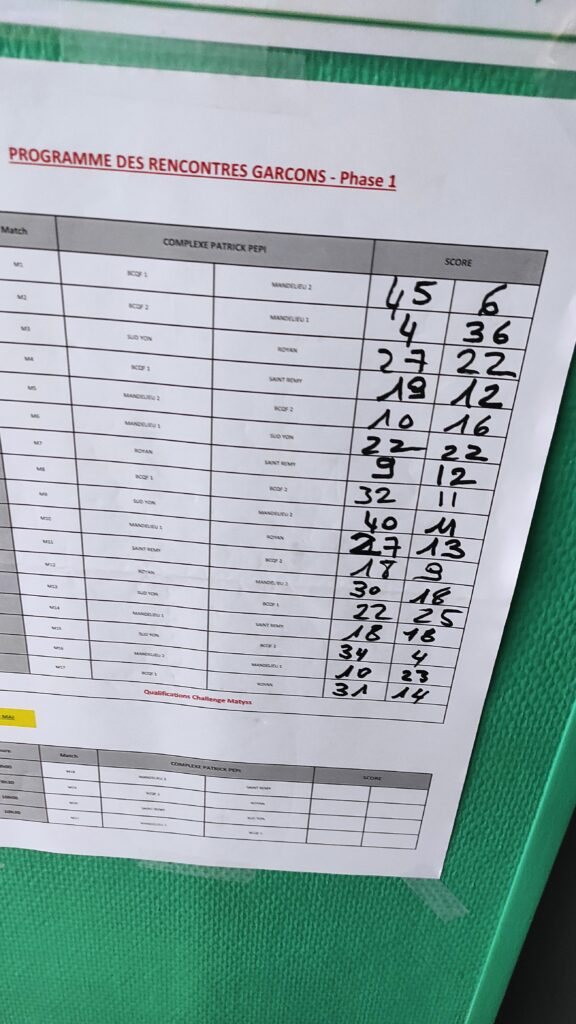 PROGRAMME DES RENCONTRES GARCONS - Phase 1
Match COMPLEXE PATRICK PEPI SCORE
M1 BCQF 1 MANDELIEU 2 45 6
M2 BCQF 2 MANDELIEU 1 4 36
M3 SUD YON ROYAN 27 22
M4 BCQF 1 SAINT REMY 19 12
M5 MANDELIEU 2 BCQF 2 10 16
M6 MANDELIEU 1 SUD YON 22 22
M7 ROYAN SAINT REMY 9 12
M8 BCQF 1 BCQF 2 32 11
M9 SUD YON MANDELIEU 2 40 11
M10 MANDELIEU 1 ROYAN 27 13
M11 SAINT REMY BCQF 2 18 9
M12 ROYAN MANDELIEU 2 30 18
M13 SUD YON BCQF 1 22 25
M14 MANDELIEU 1 SAINT REMY 18 18
M15 SUD YON BCQF 2 34 4
M16 MANDELIEU 2 MANDELIEU 1 10 23
M17 BCQF 1 ROYAN 31 14
Qualifications Challenge Matyss
MAI
Match COMPLEXE PATRICK PEPI SCORE
M18 MANDELIEU SAINT REMY
M19 BCQF 2 ROYAN
10h00 M20 SAINT REMY SUD YON
10h30 M21 MANDELIEU BCQF 1